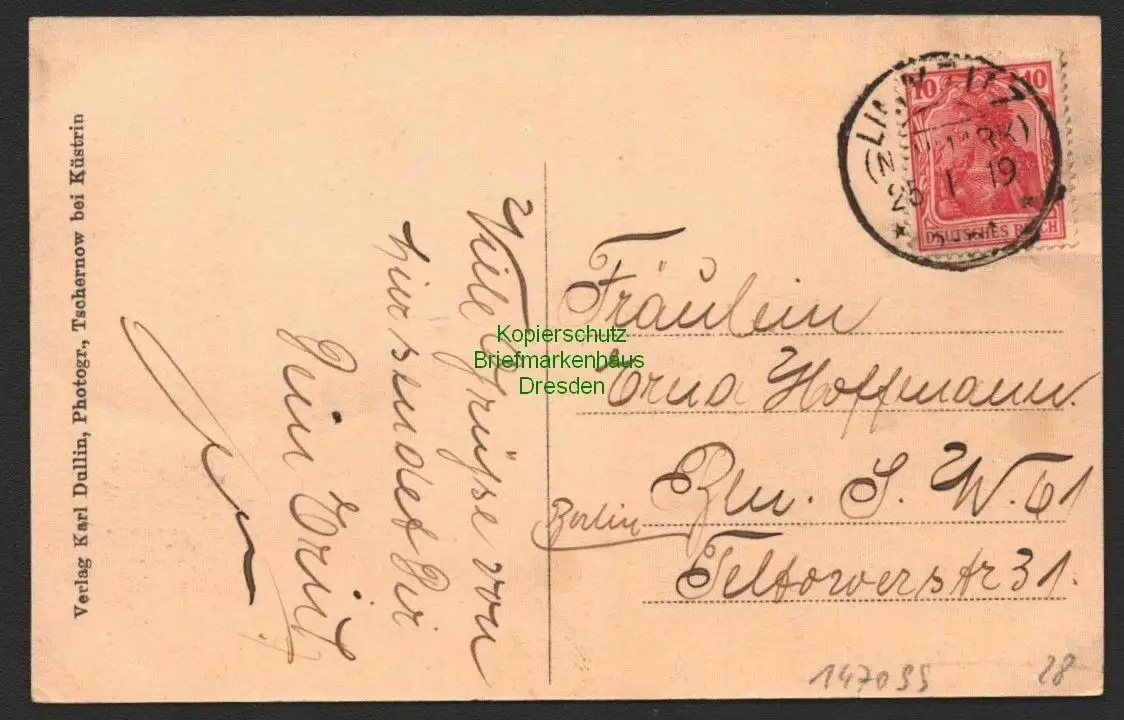 Verlag Karl Dullin, Photogr., Tschernow bei Küstrin
Viele Grüße von
hier sendet Dir
Dein
10 10
(NEUMARK)
25 1 19
DEUTSCHES REICH
Fräulein
Erna Hoffmann.
Bln. S. W. 61
Berlin
Teltowerstr 31.
Kopierschutz
Briefmarkenhaus
Dresden
147099
28